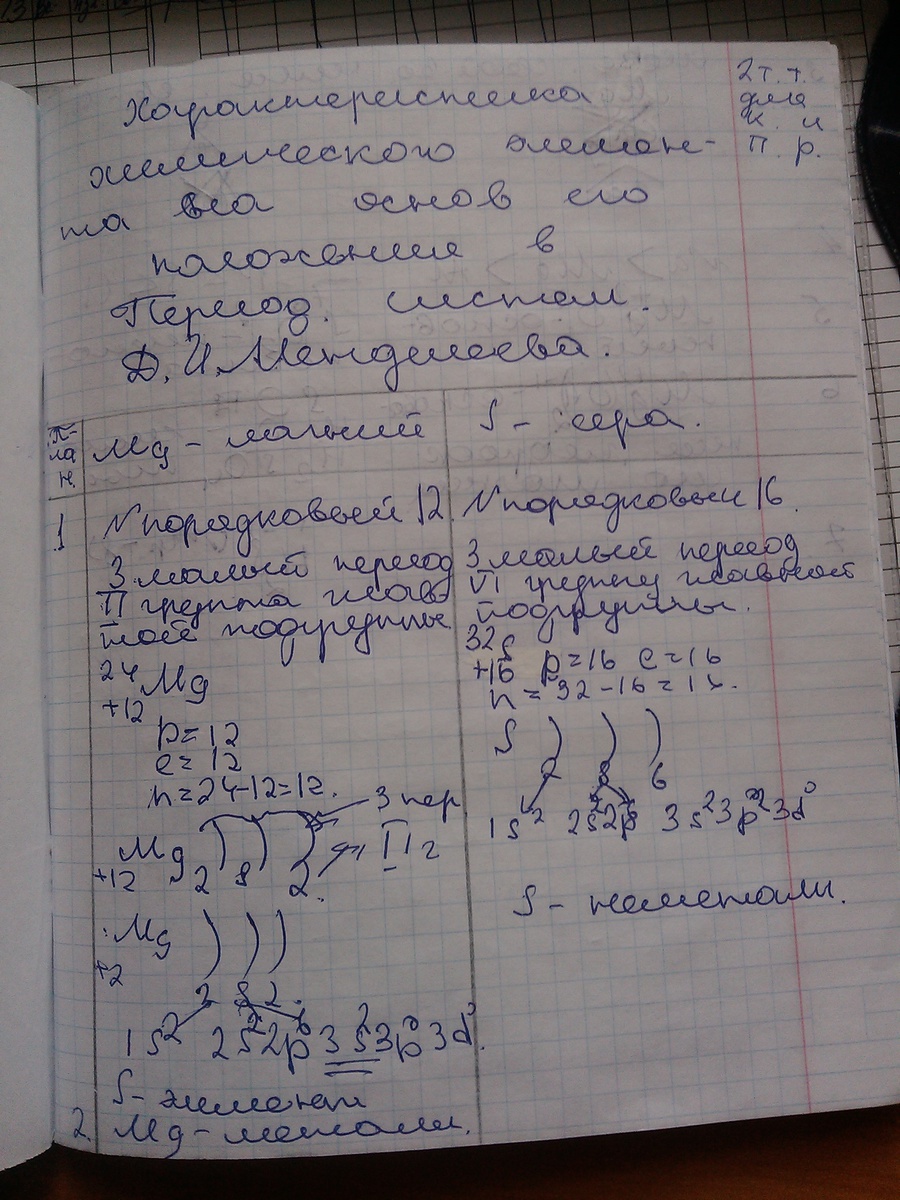 Характеристика
химического элемен-
та на основ его
положения в
Период. систем.
Д. И. Менделеева.
2 т. т.
для
к. и
п. р.
План.
Mg - магний
S - сера.
1
N порядковый 12
3 малый период
II группа глав
ной подгруппы
24
Mg
+12
p = 12
e = 12
n = 24-12=12.
3 пер
Mg
+12
2 8 2.
II г
Mg
+2
2 8 2.
1s² 2s²2p⁶ 3s²3p⁰3d⁰.
S - элемент
2. Mg - металл.
N порядковый 16.
3 малый период
VI группы главной
подгруппы.
32 S
+16 p=16 e=16
n = 32-16=16.
S
2 8 6
1s² 2s²2p⁶ 3s²3p²3d⁰
S - неметалл.